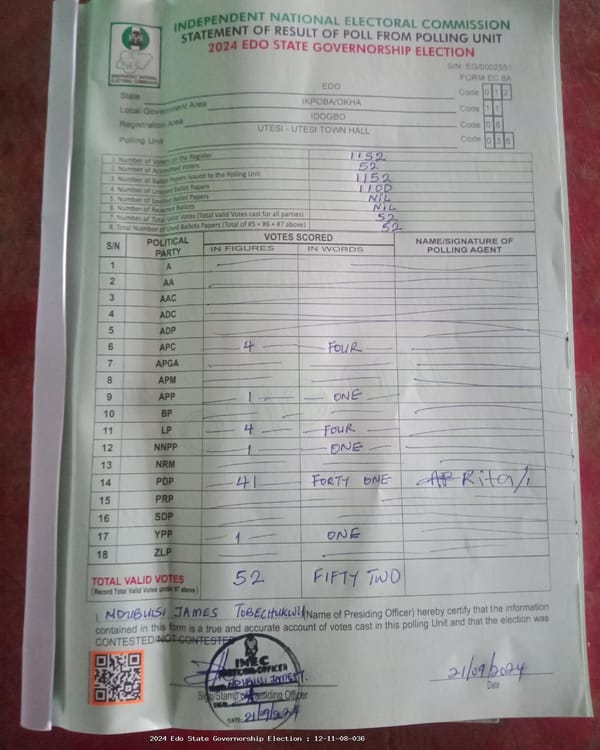 INDEPENDENT NATIONAL ELECTORAL COMMISSION
STATEMENT OF RESULT OF POLL FROM POLLING UNIT
2024 EDO STATE GOVERNORSHIP ELECTION
INEC
INDEPENDENT NATIONAL ELECTORAL COMMISSION
S/N: EG/0002551
FORM EC 8A
State EDO Code 0 1 2
Local Government Area IKPOBA/OKHA Code 1 1
Registration Area IDOGBO Code 0 8
Polling Unit UTESI - UTESI TOWN HALL Code 0 3 6
1. Number of Voters on the Register 1152
2. Number of Accredited Voters 52
3. Number of Ballot Papers Issued to the Polling Unit 1152
4. Number of Unused Ballot Papers 1100
5. Number of Spoiled Ballot Papers NIL
6. Number of Rejected Ballots NIL
7. Number of Total Valid Votes (Total Valid Votes cast for all parties) 52
8. Total Number of Used Ballots Papers (Total of #5 + #6 + #7 above) 52
S/N POLITICAL PARTY VOTES SCORED NAME/SIGNATURE OF POLLING AGENT
IN FIGURES IN WORDS
1 A
2 AA
3 AAC
4 ADC
5 ADP
6 APC 4 FOUR
7 APGA
8 APM
9 APP 1 ONE
10 BP
11 LP 4 FOUR
12 NNPP 1 ONE
13 NRM
14 PDP 41 FORTY ONE Rita
15 PRP
16 SDP
17 YPP 1 ONE
18 ZLP
TOTAL VALID VOTES 52 FIFTY TWO
(Record Total Valid Votes under #7 above)
I, NDUBUISI JAMES TOBECHUKWU (Name of Presiding Officer) hereby certify that the information
contained in this form is a true and accurate account of votes cast in this polling Unit and that the election was
CONTESTED/NOT CONTESTED
INEC
NDUBUISI JAMES T.
Sign/Stamp of Presiding Officer
DATE: 21/09/2024
21/09/2024
Date
2024 Edo State Governorship Election : 12-11-08-036